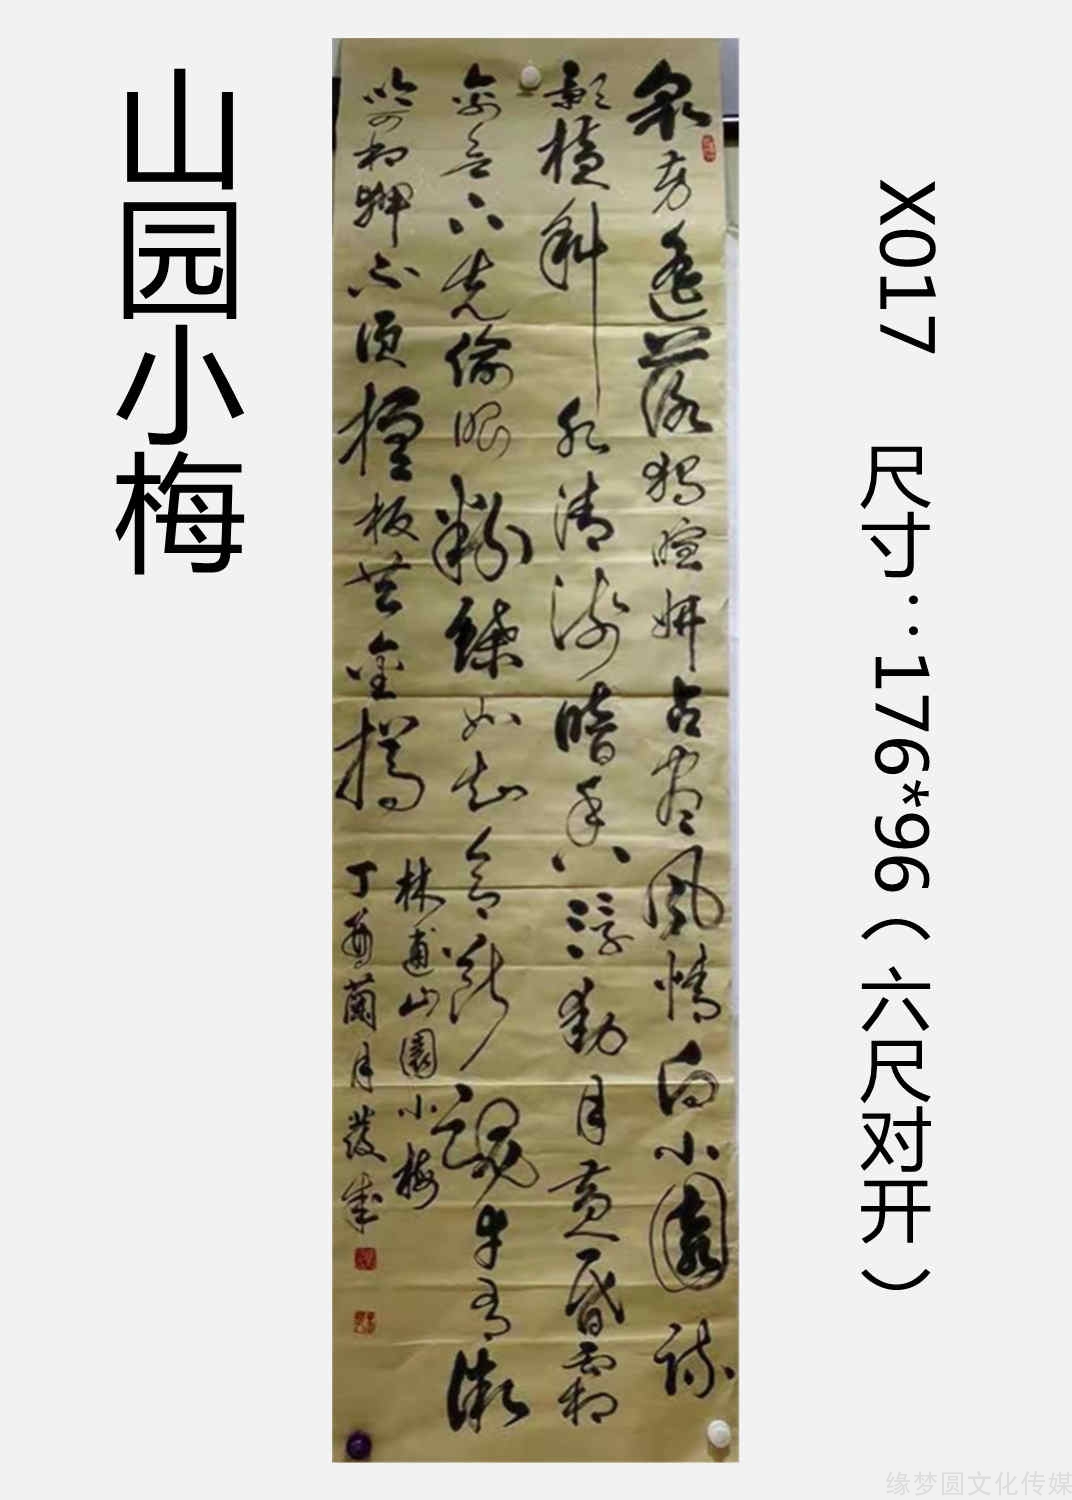 山园小梅
X017 尺寸：176*96（六尺对开）
衆芳遥落獨暄妍占盡風情向小園疎
影横斜水清淺暗香浮動月黄昏霜
禽欲下先偷眼粉蝶如知合斷魂幸有微
吟可相狎不須檀板共金樽
林逋山園小梅
丁酉蘭月
缘梦圆文化传媒